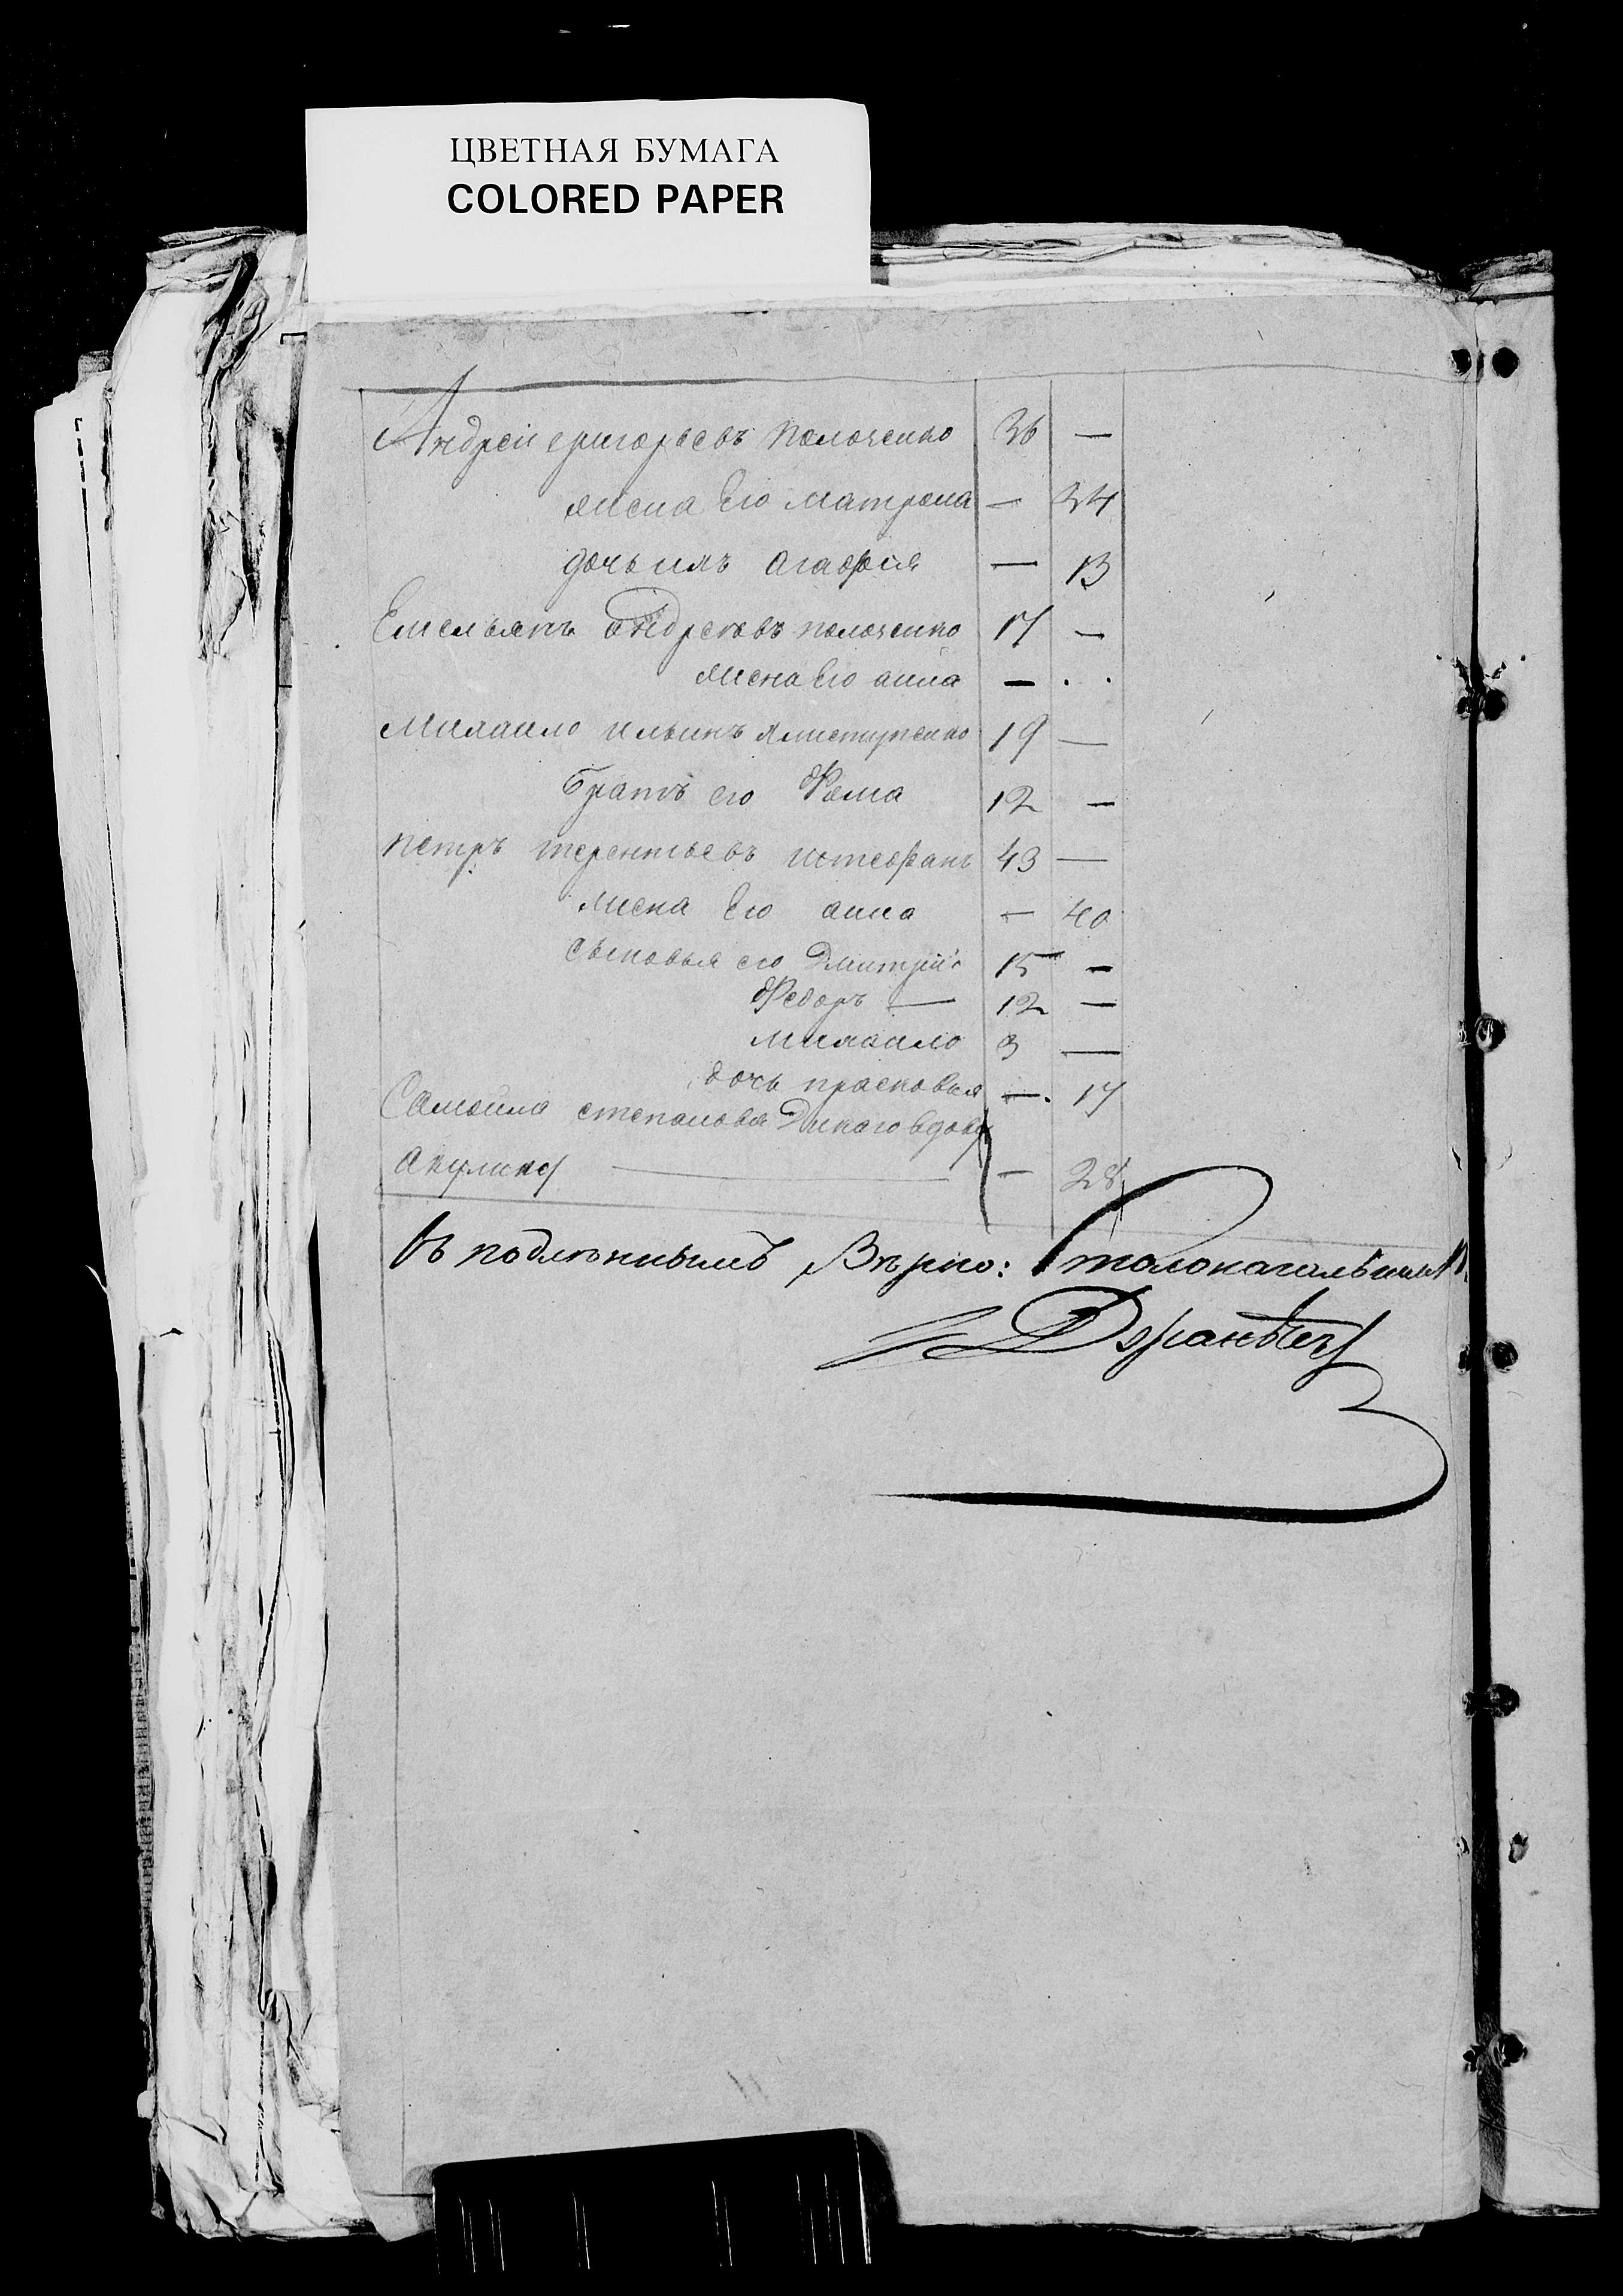 ЦВЕТНАЯ БУМАГА
COLORED PAPER
Андрей григорьевъ Полоченко 36 —
жена Его матрона — 34
дочь ихъ Агафия — 13
Емельянъ Андреевъ полоченко 17 —
жена Его анна — . .
Михаило ильинъ 19 —
братъ его Фома 12 —
петръ терентьевъ 43 —
жена Его анна — 40
сыновья его Дмитрий 15 —
Федоръ — 12 —
михаило 3 —
дочь прасковья — 17
Самойла степанова Дикаго вдова
акулина — — 28
Съ подлиннымъ Вѣрно: Столоначальникъ